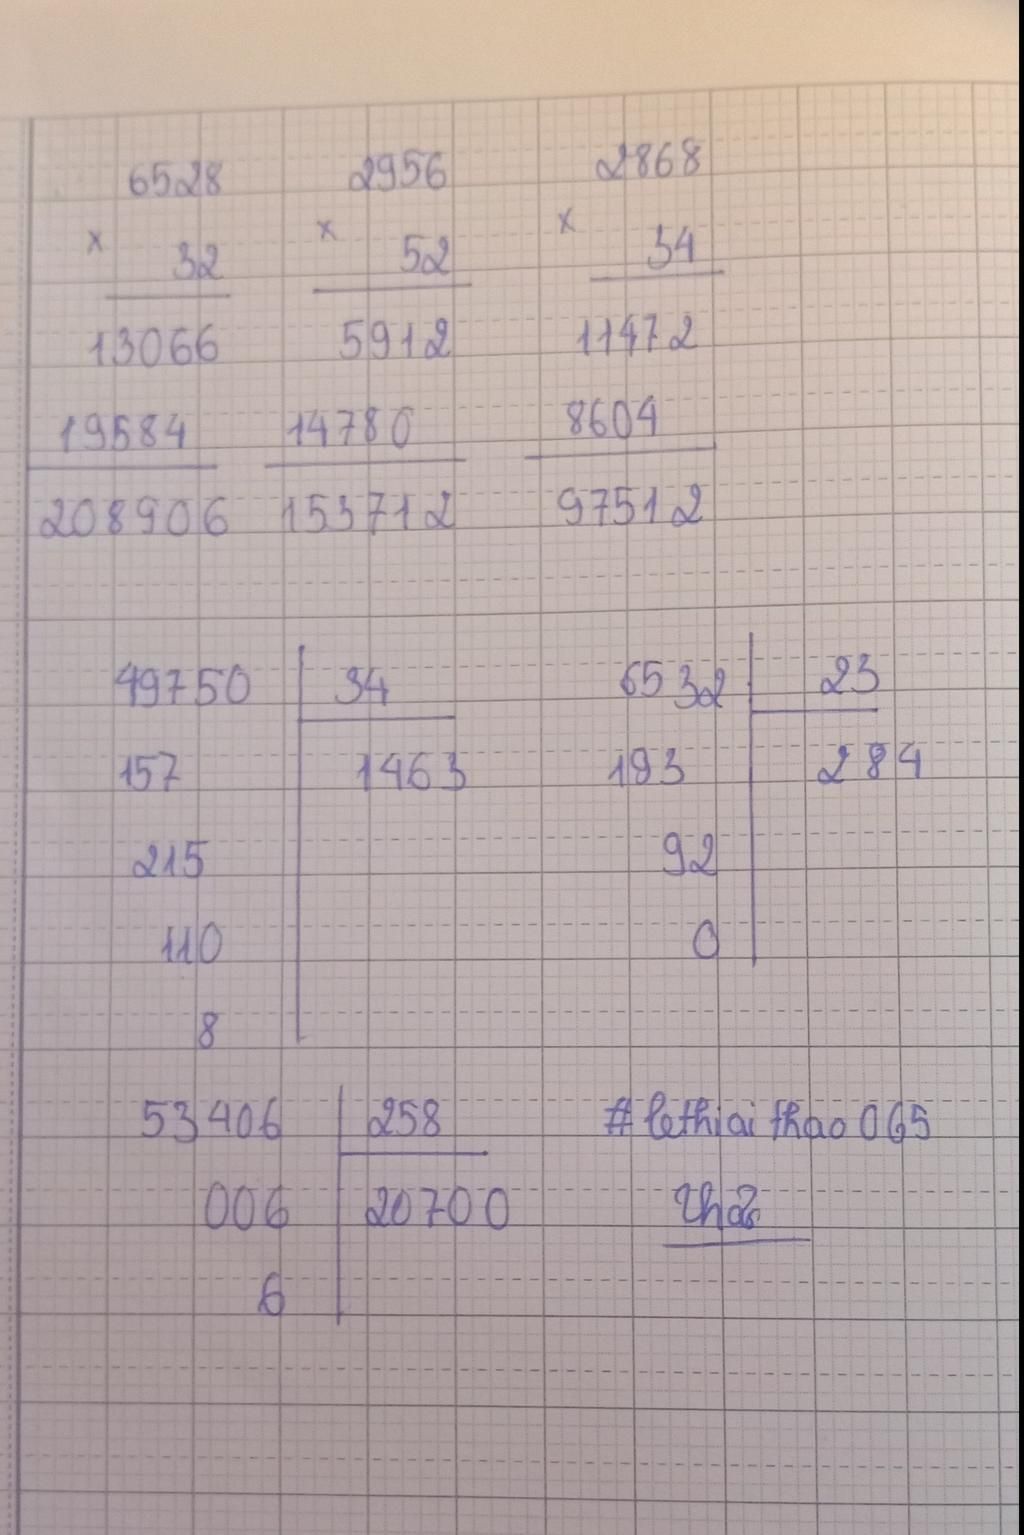 6528 2956 2868
x 32 x 52 x 34
13066 5912 11472
19584 14780 8604
208906 153712 97512
49750 34 6532 23
157 1463 193 284
215 92
110 0
8
53406 258 #lethiaithao065
006 20700
6